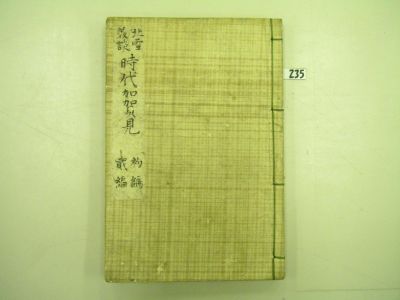 北雪
美談
時代加賀見
初編
貳編
235